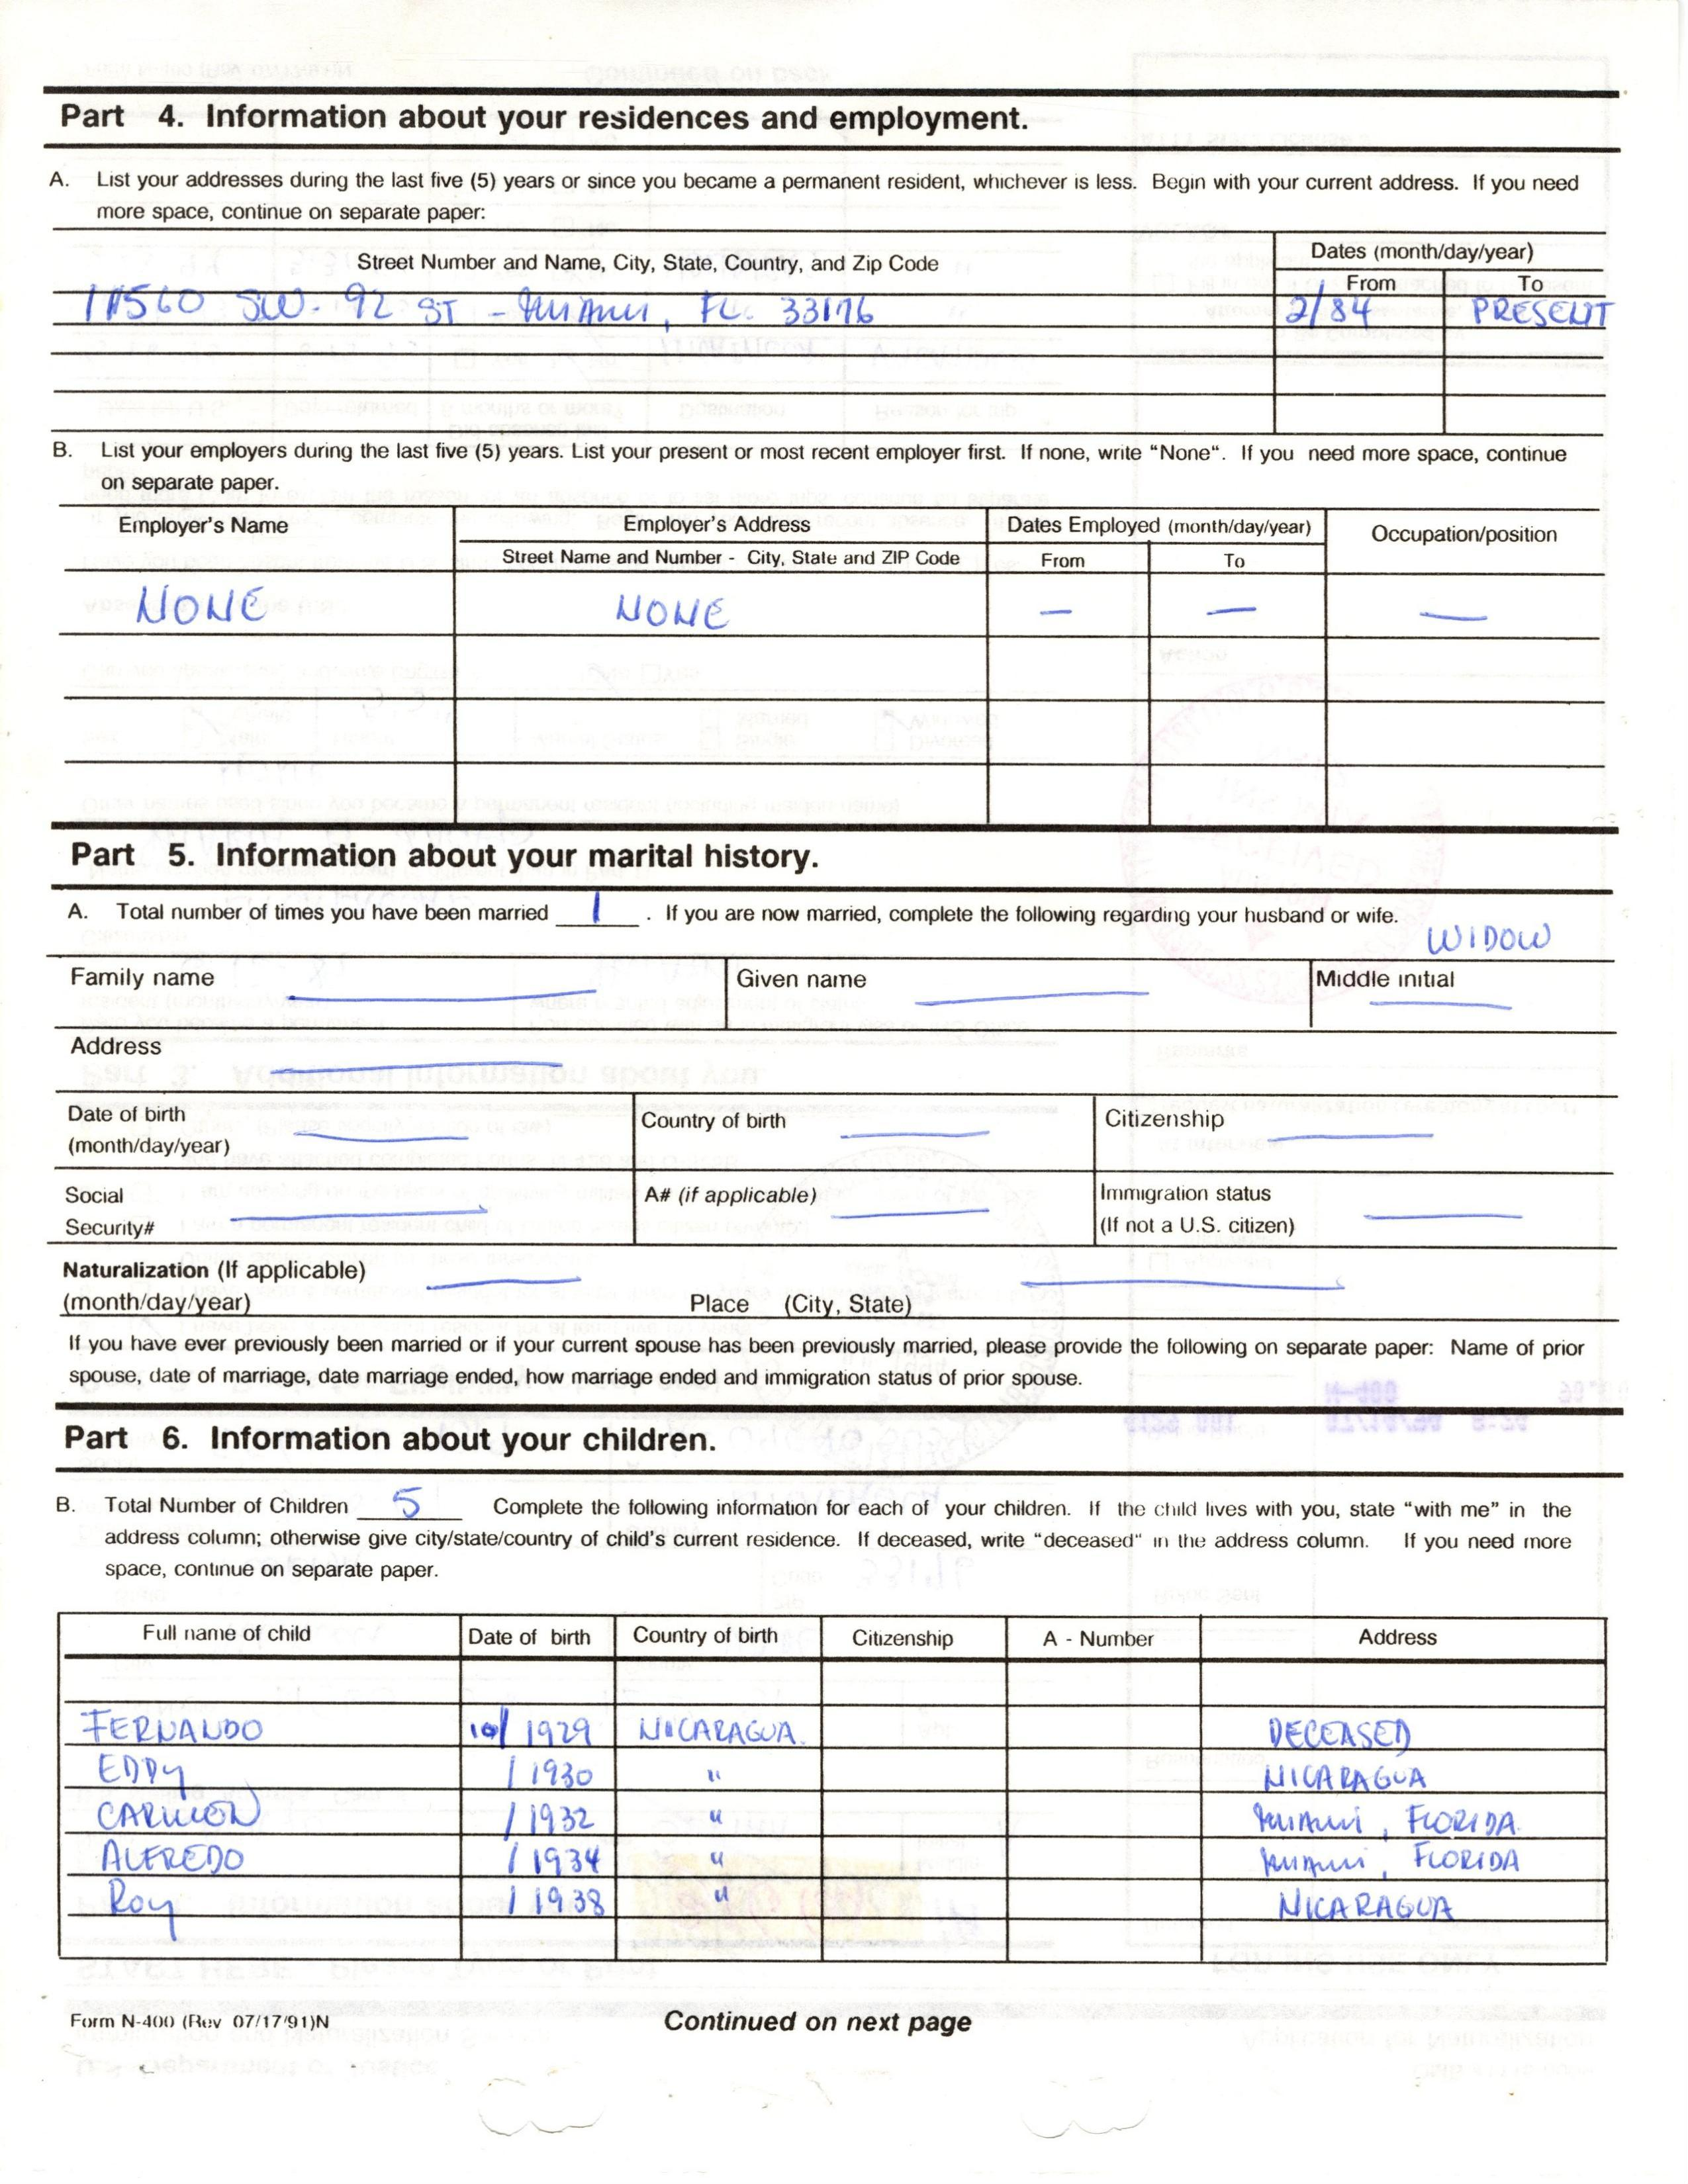 Part 4. Information about your residences and employment.
A. List your addresses during the last five (5) years or since you became a permanent resident, whichever is less. Begin with your current address. If you need
more space, continue on separate paper:
Street Number and Name, City, State, Country, and Zip Code
Dates (month/day/year)
From To
11560 SW. 92 ST - Miami, FL. 33176 2/84 PRESENT
B. List your employers during the last five (5) years. List your present or most recent employer first. If none, write "None". If you need more space, continue
on separate paper.
Employer's Name Employer's Address Dates Employed (month/day/year) Occupation/position
Street Name and Number - City, State and ZIP Code From To
NONE NONE — — —
Part 5. Information about your marital history.
A. Total number of times you have been married 1 . If you are now married, complete the following regarding your husband or wife.
WIDOW
Family name Given name Middle initial
Address
Date of birth Country of birth Citizenship
(month/day/year)
Social A# (if applicable) Immigration status
Security# (If not a U.S. citizen)
Naturalization (If applicable)
(month/day/year) Place (City, State)
If you have ever previously been married or if your current spouse has been previously married, please provide the following on separate paper: Name of prior
spouse, date of marriage, date marriage ended, how marriage ended and immigration status of prior spouse.
Part 6. Information about your children.
B. Total Number of Children 5 Complete the following information for each of your children. If the child lives with you, state "with me" in the
address column; otherwise give city/state/country of child's current residence. If deceased, write "deceased" in the address column. If you need more
space, continue on separate paper.
Full name of child Date of birth Country of birth Citizenship A - Number Address
FERNANDO 10/ 1929 NICARAGUA. DECEASED
EDDY / 1930 " NICARAGUA
CARMEN / 1932 " Miami, FLORIDA.
ALFREDO / 1934 " Miami, FLORIDA
Roy / 1938 " NICARAGUA
Form N-400 (Rev 07/17/91)N Continued on next page